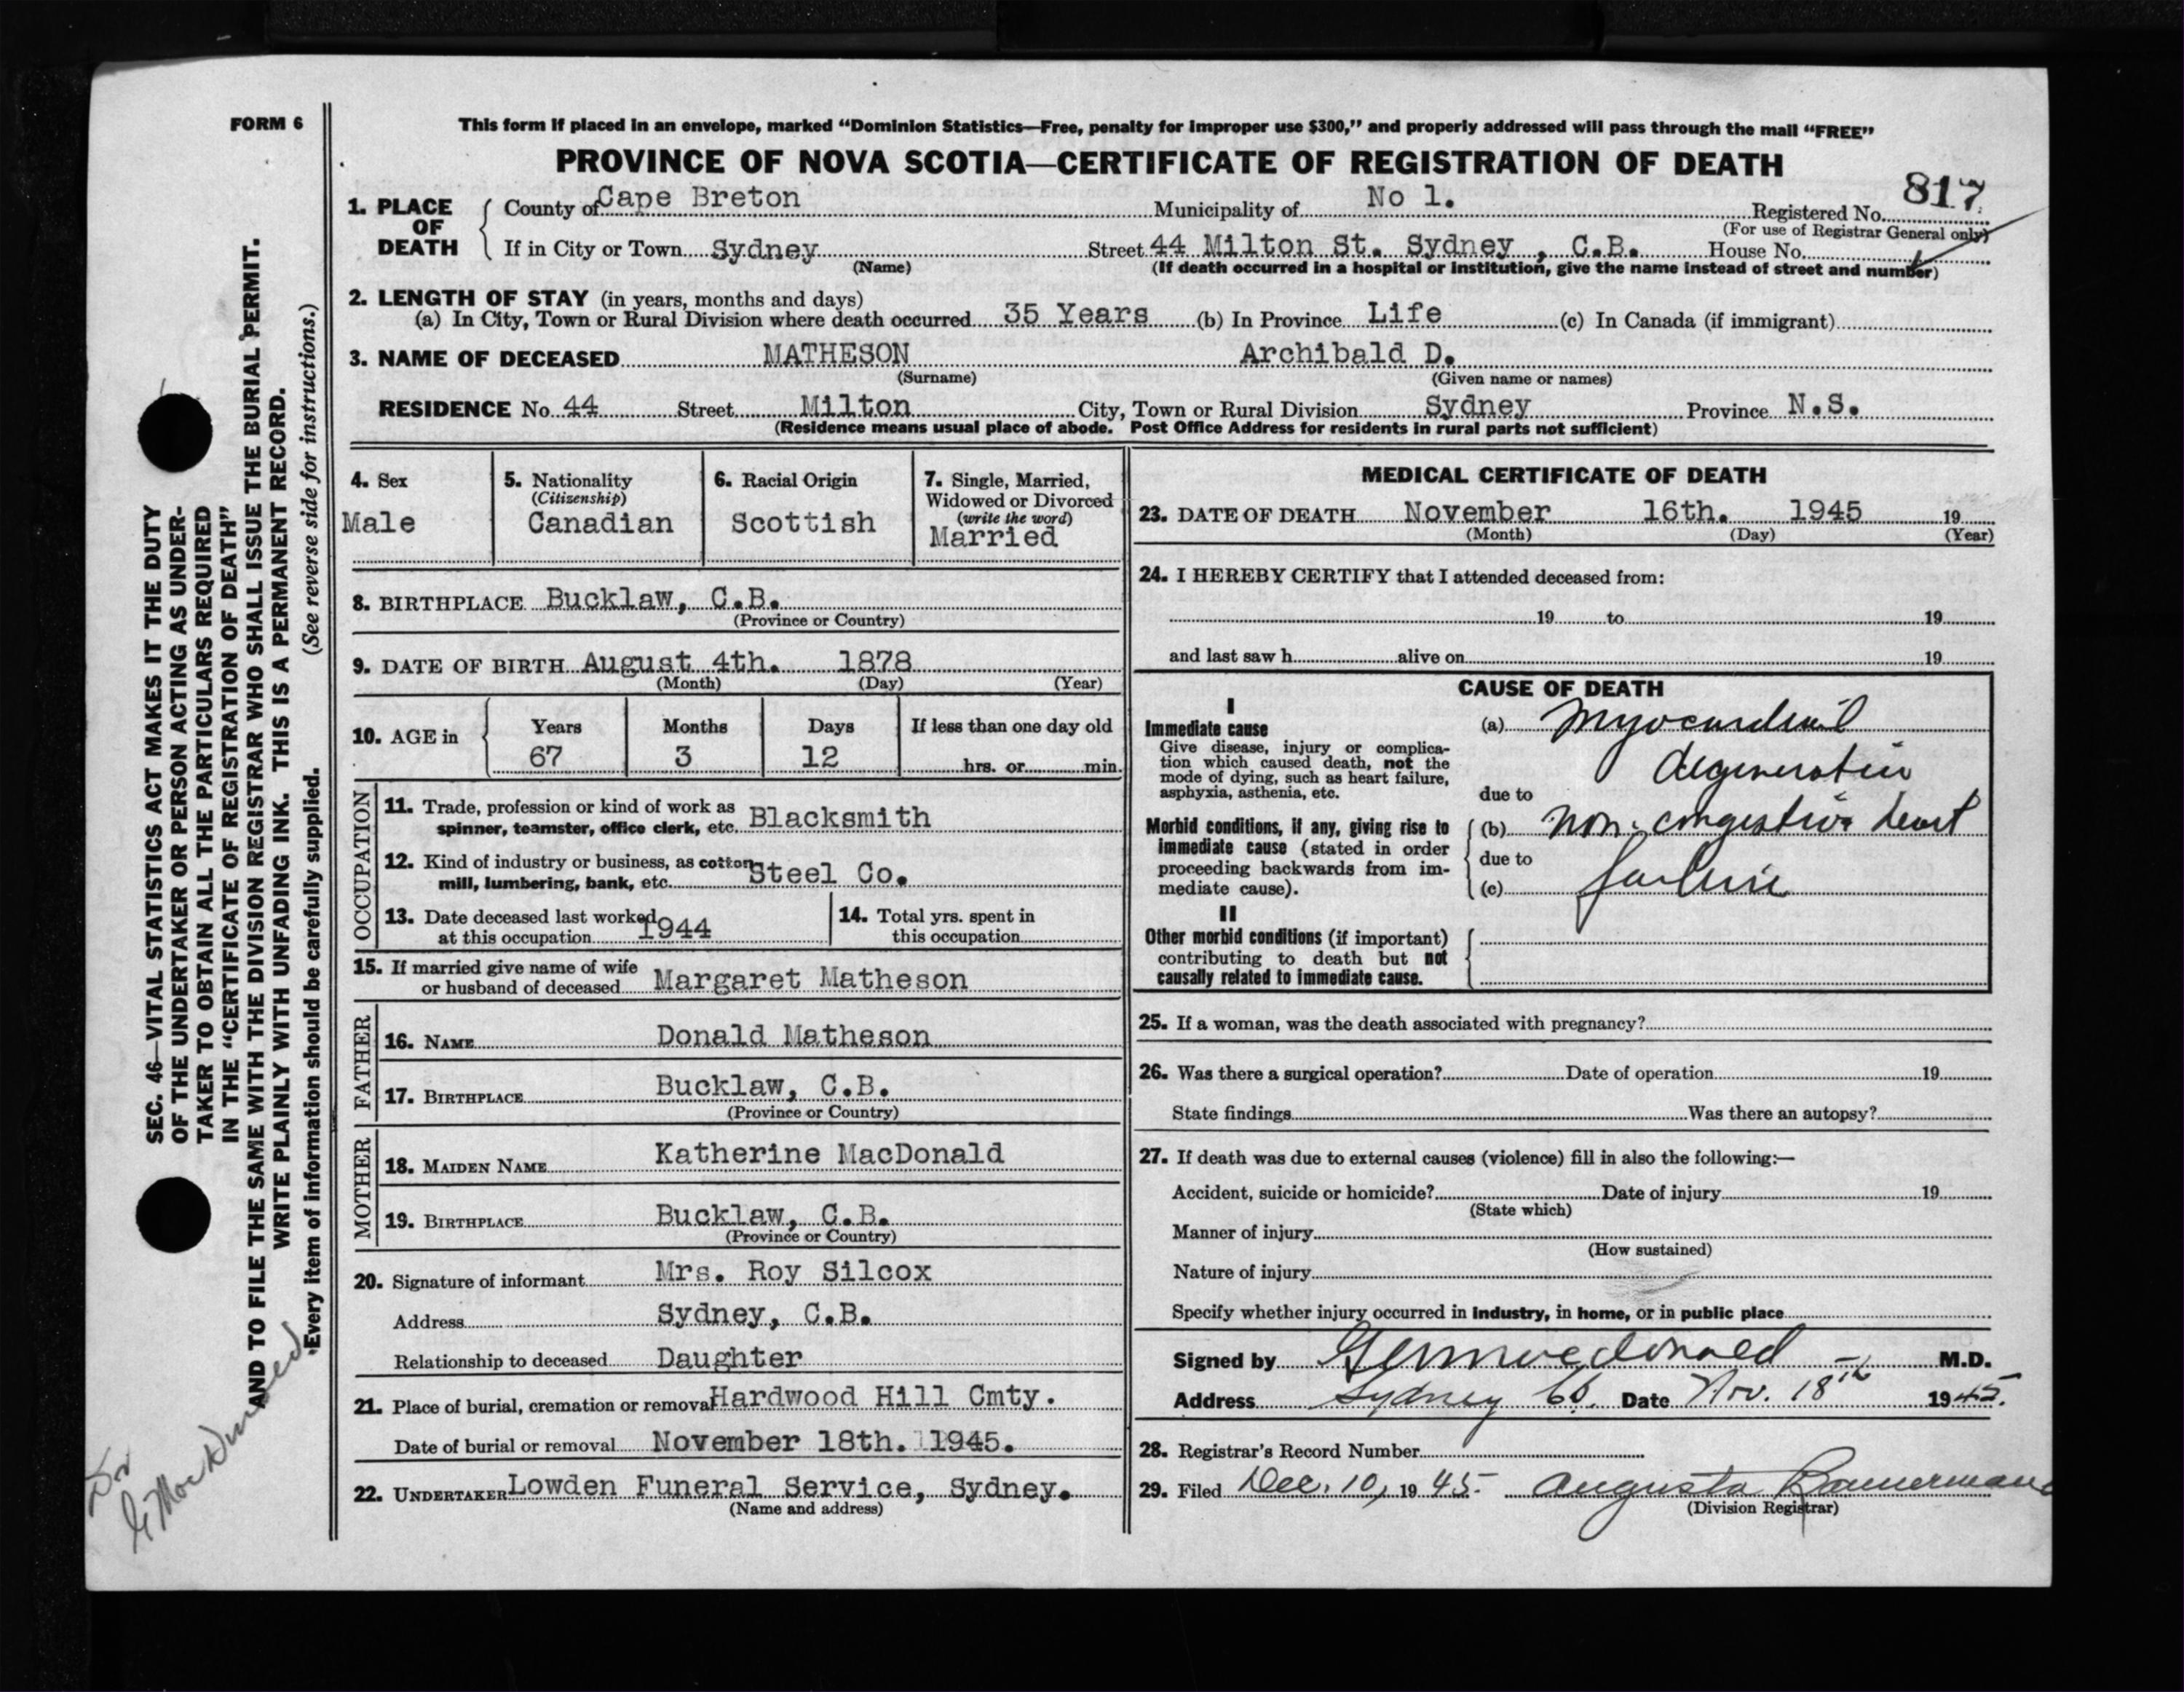 FORM 6
This form if placed in an envelope, marked “Dominion Statistics—Free, penalty for improper use $300,” and properly addressed will pass through the mail “FREE”
PROVINCE OF NOVA SCOTIA—CERTIFICATE OF REGISTRATION OF DEATH
817
1. PLACE OF DEATH { County of Cape Breton Municipality of No 1. Registered No.
(For use of Registrar General only)
If in City or Town Sydney Street 44 Milton St. Sydney , C.B. House No.
(Name) (If death occurred in a hospital or institution, give the name instead of street and number)
2. LENGTH OF STAY (in years, months and days)
(a) In City, Town or Rural Division where death occurred 35 Years (b) In Province Life (c) In Canada (if immigrant)
3. NAME OF DECEASED MATHESON Archibald D.
(Surname) (Given name or names)
RESIDENCE No. 44 Street Milton City, Town or Rural Division Sydney Province N.S.
(Residence means usual place of abode. Post Office Address for residents in rural parts not sufficient)
4. Sex
Male
5. Nationality
(Citizenship)
Canadian
6. Racial Origin
Scottish
7. Single, Married,
Widowed or Divorced
(write the word)
Married
8. BIRTHPLACE Bucklaw, C.B.
(Province or Country)
9. DATE OF BIRTH August 4th. 1878
(Month) (Day) (Year)
10. AGE in { Years Months Days If less than one day old
67 3 12 hrs. or min.
OCCUPATION
11. Trade, profession or kind of work as
spinner, teamster, office clerk, etc. Blacksmith
12. Kind of industry or business, as cotton
mill, lumbering, bank, etc. Steel Co.
13. Date deceased last worked
at this occupation 1944
14. Total yrs. spent in
this occupation
15. If married give name of wife
or husband of deceased Margaret Matheson
FATHER
16. NAME Donald Matheson
17. BIRTHPLACE Bucklaw, C.B.
(Province or Country)
MOTHER
18. MAIDEN NAME Katherine MacDonald
19. BIRTHPLACE Bucklaw, C.B.
(Province or Country)
20. Signature of informant Mrs. Roy Silcox
Address Sydney, C.B.
Relationship to deceased Daughter
21. Place of burial, cremation or removal Hardwood Hill Cmty.
Date of burial or removal November 18th. 1945.
22. UNDERTAKER Lowden Funeral Service, Sydney.
(Name and address)
MEDICAL CERTIFICATE OF DEATH
23. DATE OF DEATH November 16th. 1945 19
(Month) (Day) (Year)
24. I HEREBY CERTIFY that I attended deceased from:
19 to 19
and last saw h alive on 19
CAUSE OF DEATH
I
Immediate cause
Give disease, injury or complica-
tion which caused death, not the
mode of dying, such as heart failure,
asphyxia, asthenia, etc.
(a) Myocardial
degeneration
due to
Morbid conditions, if any, giving rise to
immediate cause (stated in order
proceeding backwards from im-
mediate cause).
(b) Non-congestive heart
due to
(c) failure
II
Other morbid conditions (if important)
contributing to death but not
causally related to immediate cause.
25. If a woman, was the death associated with pregnancy?
26. Was there a surgical operation? Date of operation 19
State findings Was there an autopsy?
27. If death was due to external causes (violence) fill in also the following:—
Accident, suicide or homicide? Date of injury 19
(State which)
Manner of injury
(How sustained)
Nature of injury
Specify whether injury occurred in industry, in home, or in public place
Signed by MacDonald M.D.
Address Sydney CB. Date Nov. 18th 1945.
28. Registrar's Record Number
29. Filed Dec. 10, 1945. Augusta Bannerman
(Division Registrar)
SEC. 46—VITAL STATISTICS ACT MAKES IT THE DUTY
OF THE UNDERTAKER OR PERSON ACTING AS UNDER-
TAKER TO OBTAIN ALL THE PARTICULARS REQUIRED
IN THE “CERTIFICATE OF REGISTRATION OF DEATH”
AND TO FILE THE SAME WITH THE DIVISION REGISTRAR WHO SHALL ISSUE THE BURIAL PERMIT.
WRITE PLAINLY WITH UNFADING INK. THIS IS A PERMANENT RECORD.
Every item of information should be carefully supplied. (See reverse side for instructions.)
Dr